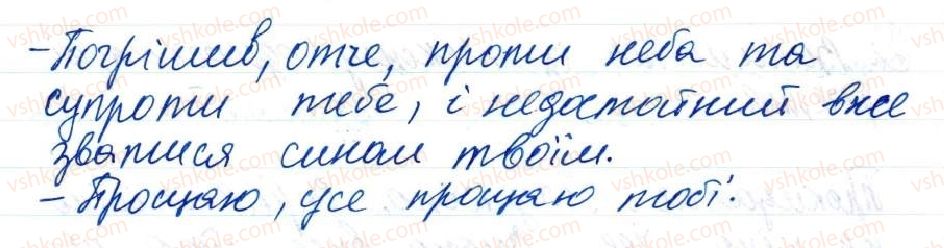 - Погрішив, отче, проти неба та
супроти тебе, і недостойний вже
зватися сином твоїм.
- Прощаю, усе прощаю тобі.